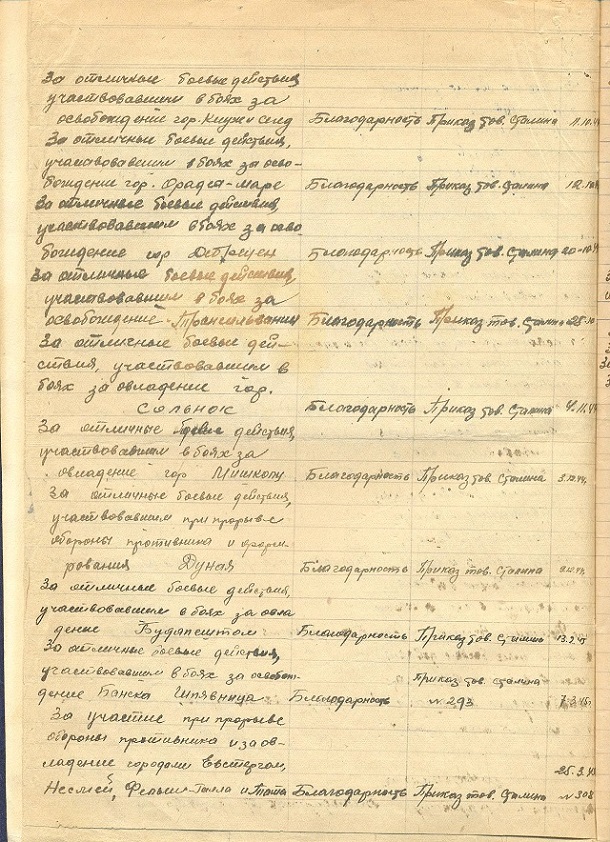 За отличные боевые действия
участвовавшим в боях за
освобождение гор. Благодарность Приказ тов. Сталина 11.10.4
За отличные боевые действия,
участвовавшим в боях за осво-
бождение гор. Орадеа-маре Благодарность Приказ тов. Сталина 12.10
За отличные боевые действия,
участвовавшим в боях за осво
бождение гор Дебрецен Благодарность Приказ тов. Сталина 20-10.4
За отличные боевые действия,
участвовавшим в боях за
освобождение Трансильвании Благодарность Приказ тов. Сталина 25.10
За отличные боевые дей-
ствия, участвовавшим в
боях за овладение гор.
Сольнок Благодарность Приказ тов. Сталина 4.11.44
За отличные боевые действия,
участвовавшим в боях за
овладение гор Мишкопц Благодарность Приказ тов. Сталина 3.12.44.
За отличные боевые действия,
участвовавшим при прорыве
обороны противника и форси-
рования Дуная Благодарность Приказ тов. Сталина
За отличные боевые действия,
участвовавшим в боях за овла
дение Будапештом Благодарность Приказ тов. Сталина 13.2.45
За отличные боевые действия,
участвовавшим в боях за освобож-
дение Банска Штявница Благодарность Приказ тов. Сталина № 293 7.3.45.
За участие при прорыве
обороны противника и за ов-
ладение городами Эстергом,
Несмей, Фельше-Галла и Тата Благодарность Приказ тов. Сталина 25.3.45 № 308